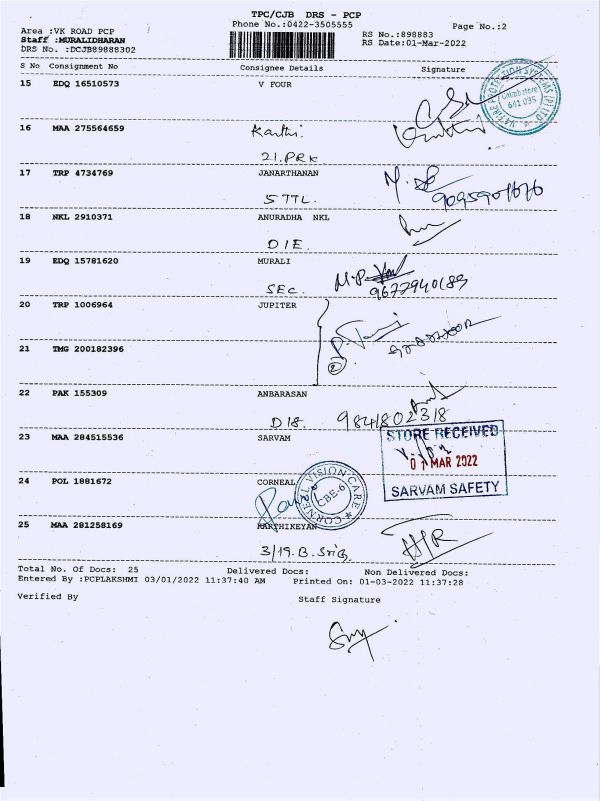 TPC/CJB DRS - PCP
Phone No.:0422-3505555
Page No.:2
Area :VK ROAD PCP
Staff :MURALIDHARAN
DRS No. :DCJB89888302
RS No.:898883
RS Date:01-Mar-2022
S No Consignment No Consignee Details Signature
15 EDQ 16510573 V FOUR
NATURE PROTECTION SYSTEMS (P) LTD
Coimbatore
641 035
16 MAA 275564659 Karthi
21.PRK
17 TRP 4734769 JANARTHANAN
5 TTL.
18 NKL 2910371 ANURADHA NKL
DIE.
19 EDQ 15781620 MURALI
SEC. M.P
20 TRP 1006964 JUPITER
21 TMG 200182396
2
22 PAK 155309 ANBARASAN
D18. 9841802318
23 MAA 284515536 SARVAM
STORE RECEIVED
01 MAR 2022
SARVAM SAFETY
24 POL 1881672 CORNEAL
CORNEAL VISION CARE
CBE-6
25 MAA 281258169 KARTHIKEYAN
3/19.B.
Total No. Of Docs: 25 Delivered Docs: Non Delivered Docs:
Entered By :PCPLAKSHMI 03/01/2022 11:37:40 AM Printed On: 01-03-2022 11:37:28
Verified By Staff Signature